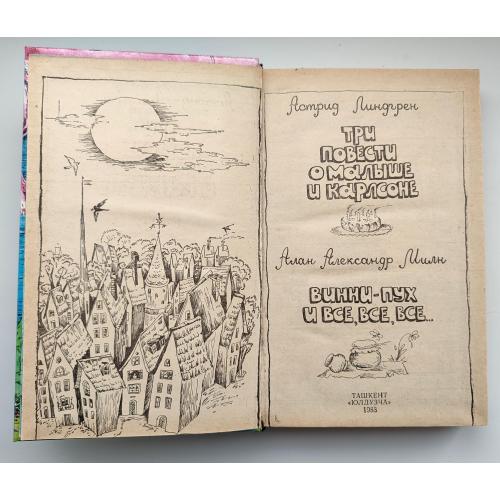 Астрид Линдгрен
ТРИ
ПОВЕСТИ
О МАЛЫШЕ
И КАРЛСОНЕ
Алан Александр Милн
ВИННИ-ПУХ
И ВСЕ, ВСЕ, ВСЕ...
ТАШКЕНТ
«ЮЛДУЗЧА»
1988